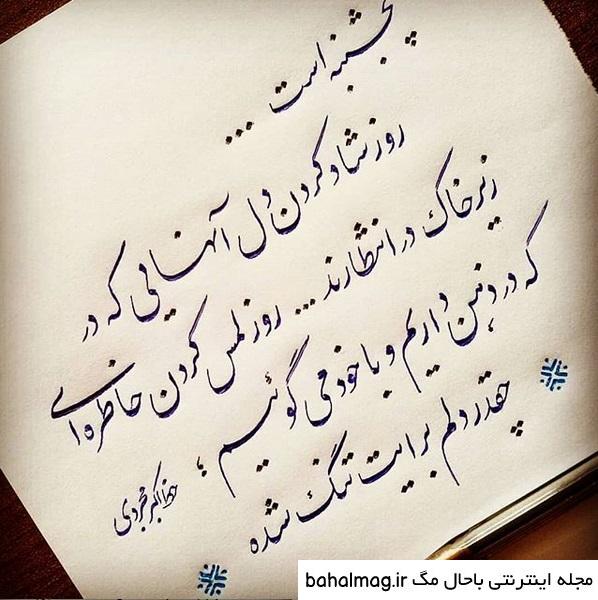 پنجشنبه است ...
روز شاد کردن دل آنهایی که در
زیر خاک در انتظارند ... روز لمس کردن خاطره‌ای
که در ذهن داریم و با خود می گوئیم ؛
چقدر دلم برایت تنگ شده
اکبر مجردی
مجله اینترنتی باحال مگ bahalmag.ir